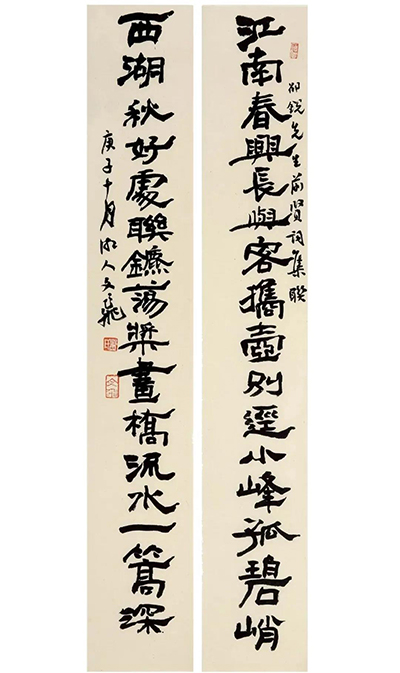 江南春興長與客攜壺別逕小峰孤碧峭
邵銳先生前賢词集聯
西湖秋好處聯鑣蕩槳畫橋流水一篙深
庚子十月人文飛